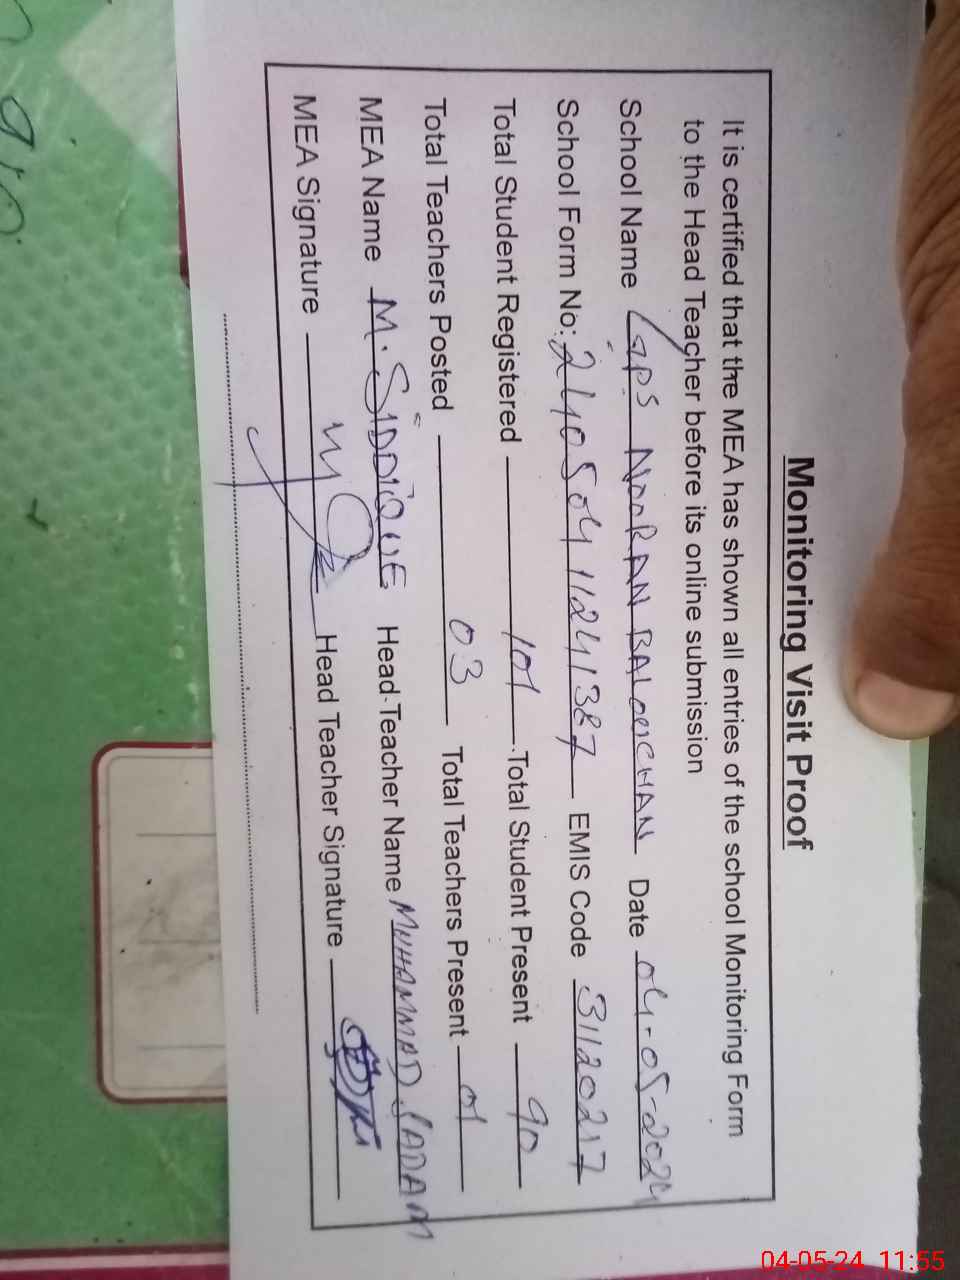 Monitoring Visit Proof
It is certified that the MEA has shown all entries of the school Monitoring Form
to the Head Teacher before its online submission
School Name GPS NOORAN BALOUCHAN Date 04-05-2024
School Form No: 24050411241387 EMIS Code 31120217
Total Student Registered 101 Total Student Present 90
Total Teachers Posted 03 Total Teachers Present 01
MEA Name M. SIDDIQUE Head Teacher Name MUHAMMAD
MEA Signature Head Teacher Signature
04-05-24 11:55